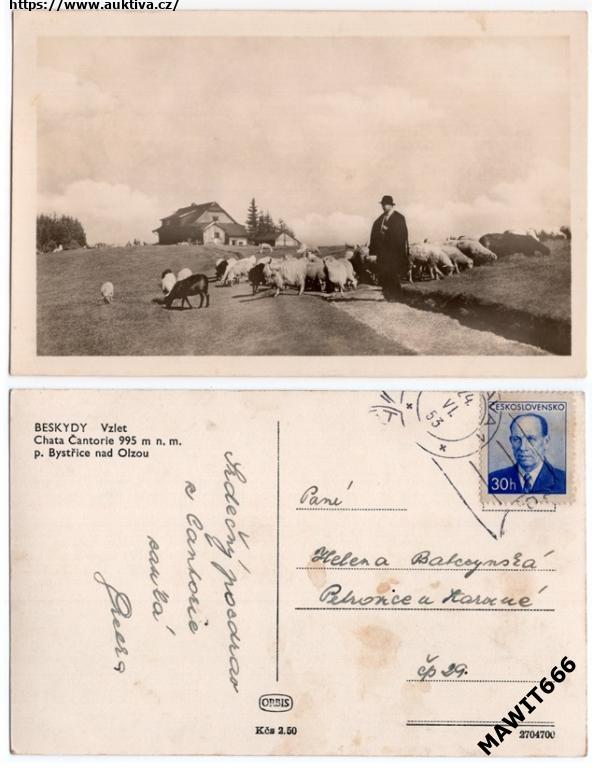 https://www.auktiva.cz/
BESKYDY Vzlet
Chata Čantorie 995 m n. m.
p. Bystřice nad Olzou
Srdečný pozdrav
z Čantorie
24.
VI.
53
ČESKOSLOVENSKO
30h
Paní
Helena Balczynská
Petrovice u Karviné
čp 29.
ORBIS
Kčs 2.50
2704700
MAWIT666